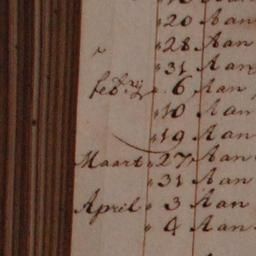 20 Aan
28 Aan
31 Aan
6 Aan
10 Aan
19 Aan
Maart 27 Aan
31 Aan
April 3 Aan
4 Aan